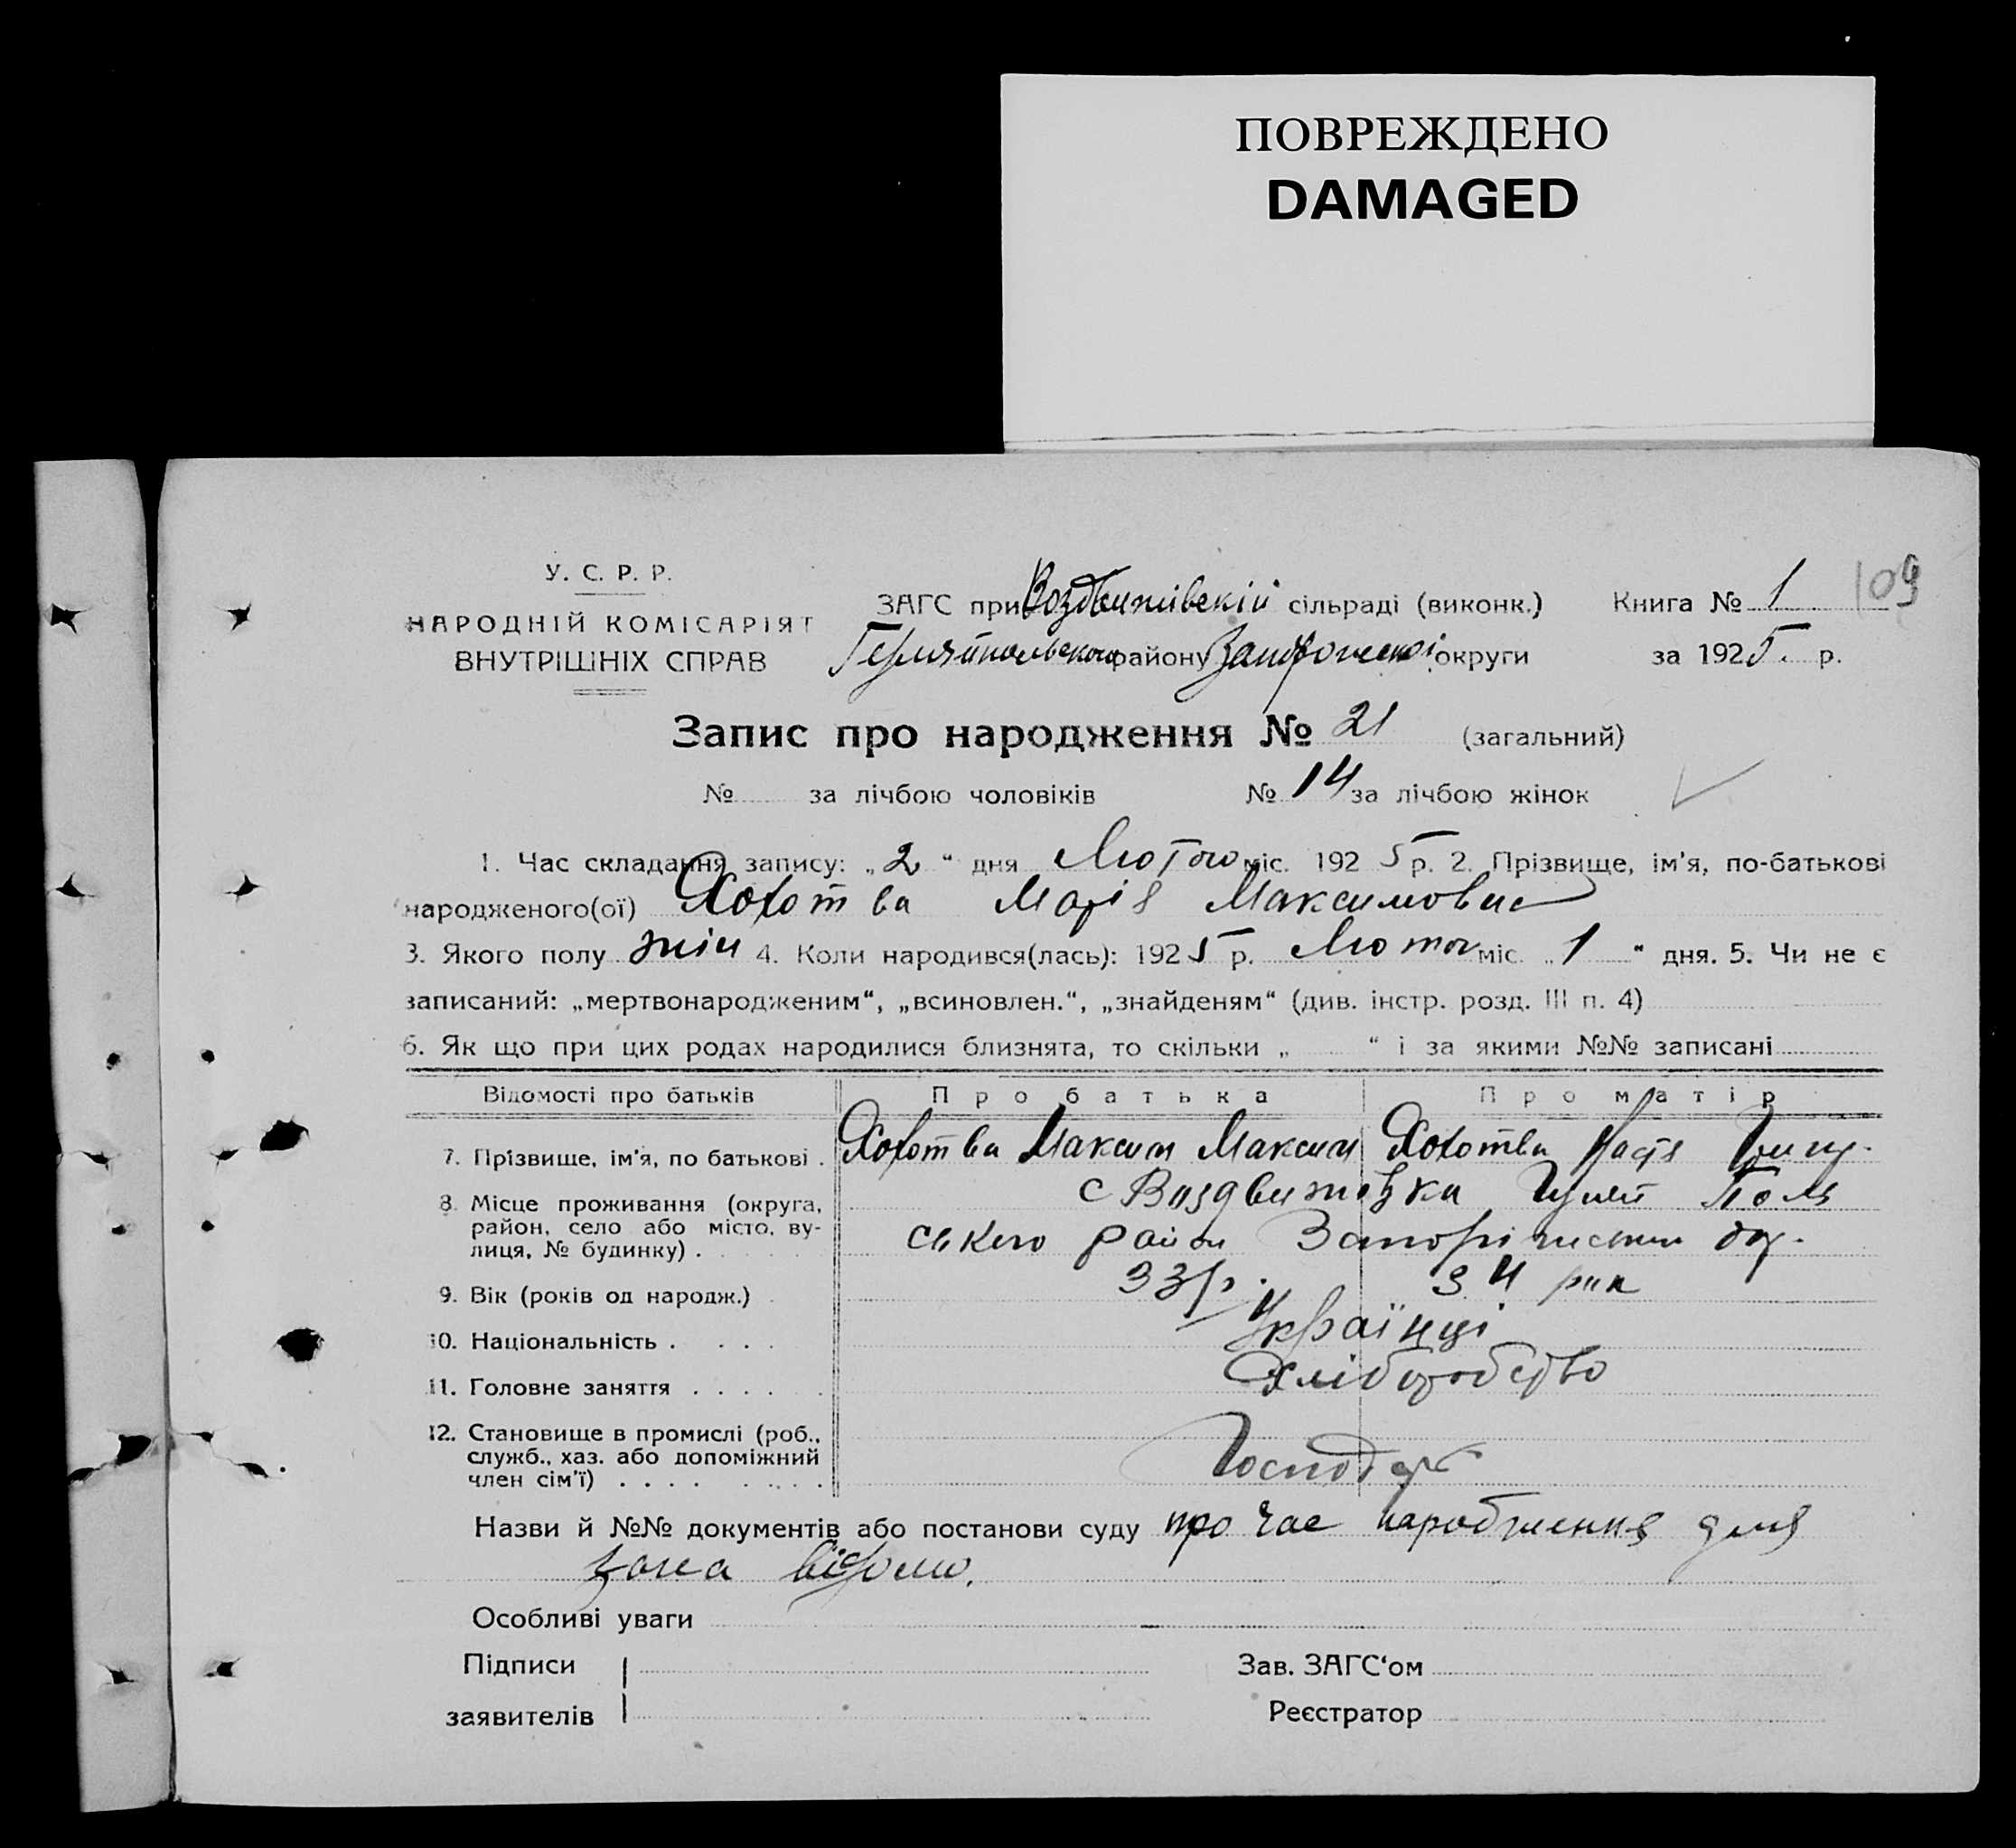 ПОВРЕЖДЕНО
DAMAGED
У. С. Р. Р.
НАРОДНІЙ КОМІСАРІЯТ
ВНУТРІШНІХ СПРАВ
ЗАГС при Воздвижівскій сільраді (виконк.)
району Запорожскої округи
Книга № 1 109
за 1925. р.
Запис про народження № 21 (загальний)
№ за лічбою чоловіків № 14 за лічбою жінок
1. Час складання запису: „2“ дня Лютого міс. 1925 р. 2. Прізвище, ім'я, по-батькові
народженого(ої) Хохотва Марія Максимовна
3. Якого полу жін 4. Коли народився(лась): 1925 р. Лютог міс. „1“ дня. 5. Чи не є
записаний: „мертвонародженим“, „всиновлен.“, „знайденям“ (див. інстр. розд. III п. 4)
6. Як що при цих родах народилися близнята, то скільки „ “ і за якими №№ записані
Відомості про батьків Про батька Про матір
7. Прізвище, ім'я, по батькові . Хохотва Максим Максим Хохотва Настя Григ.
8. Місце проживання (округа, район, село або місто, вулиця, № будинку) . с Воздвижівка Гуляй Поль
ського район Запоріжськи ок.
9. Вік (років од народж.) 33 р. 34 рик
10. Національність . . . . Українці
11. Головне заняття . . . . . Хліборобство
12. Становище в промислі (роб., служб., хаз. або допоміжний член сім'ї) . . . . . . . . . Господар
Назви й №№ документів або постанови суду про час народження для
загса відомо.
Особливі уваги
Підписи заявителів
Зав. ЗАГС'ом
Реєстратор